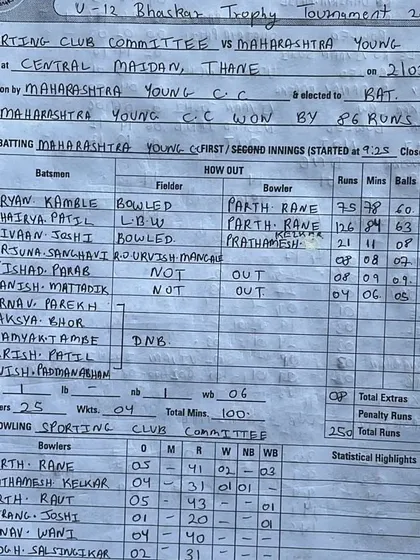 U-12 Bhaskar Trophy Tournament 2
RTING CLUB COMMITTEE VS MAHARASHTRA YOUNG
at CENTRAL MAIDAN, THANE on 2
on by MAHARASHTRA YOUNG C.C & elected to BAT.
MAHARASHTRA YOUNG C.C WON BY 86 RUNS
BATTING MAHARASHTRA YOUNG CC FIRST / SECOND INNINGS (STARTED at 9:25 Clos
Batsmen HOW OUT Runs Mins Balls
Fielder Bowler
RYAN. KAMBLE BOWLED PARTH. RANE 75 78 60
HAIRYA. PATIL L.B.W PARTH. RANE 126 84 63
IVAAN. JOSHI BOWLED PRATHAMESH KELKAR 21 11 08
RJUNA. SANGHAVI R.O. URVISH MANGALE 08 08 07
ISHAD. PARAB NOT OUT 08 09 09.
ANISH. MATTADIK NOT OUT 04 06. 05
RNAV. PAREKH
AKSYA. BHOR
AMYAK TAMBE DNB.
RISH. PATIL
VISH. PADMANABHAN
1 lb - nb 1 wb 06 08 Total Extras
ers 25 Wkts. 04 Total Mins. 100. Penalty Runs
250 Total Runs
OWLING SPORTING CLUB COMMITTEE
Bowlers O M R W NB WB Statistical Highlights
RTH. RANE 05 - 41 02 - 03
THAMESH. KELKAR 04 - 31 01 01 -
RTH. RAUT 05 - 43 - - 01
RANG. JOSHI 01 - 20 - - 01
NAV. WANI 04 - 40 - - -
OGH. SALSINGIKAR 02 - 31 - - -